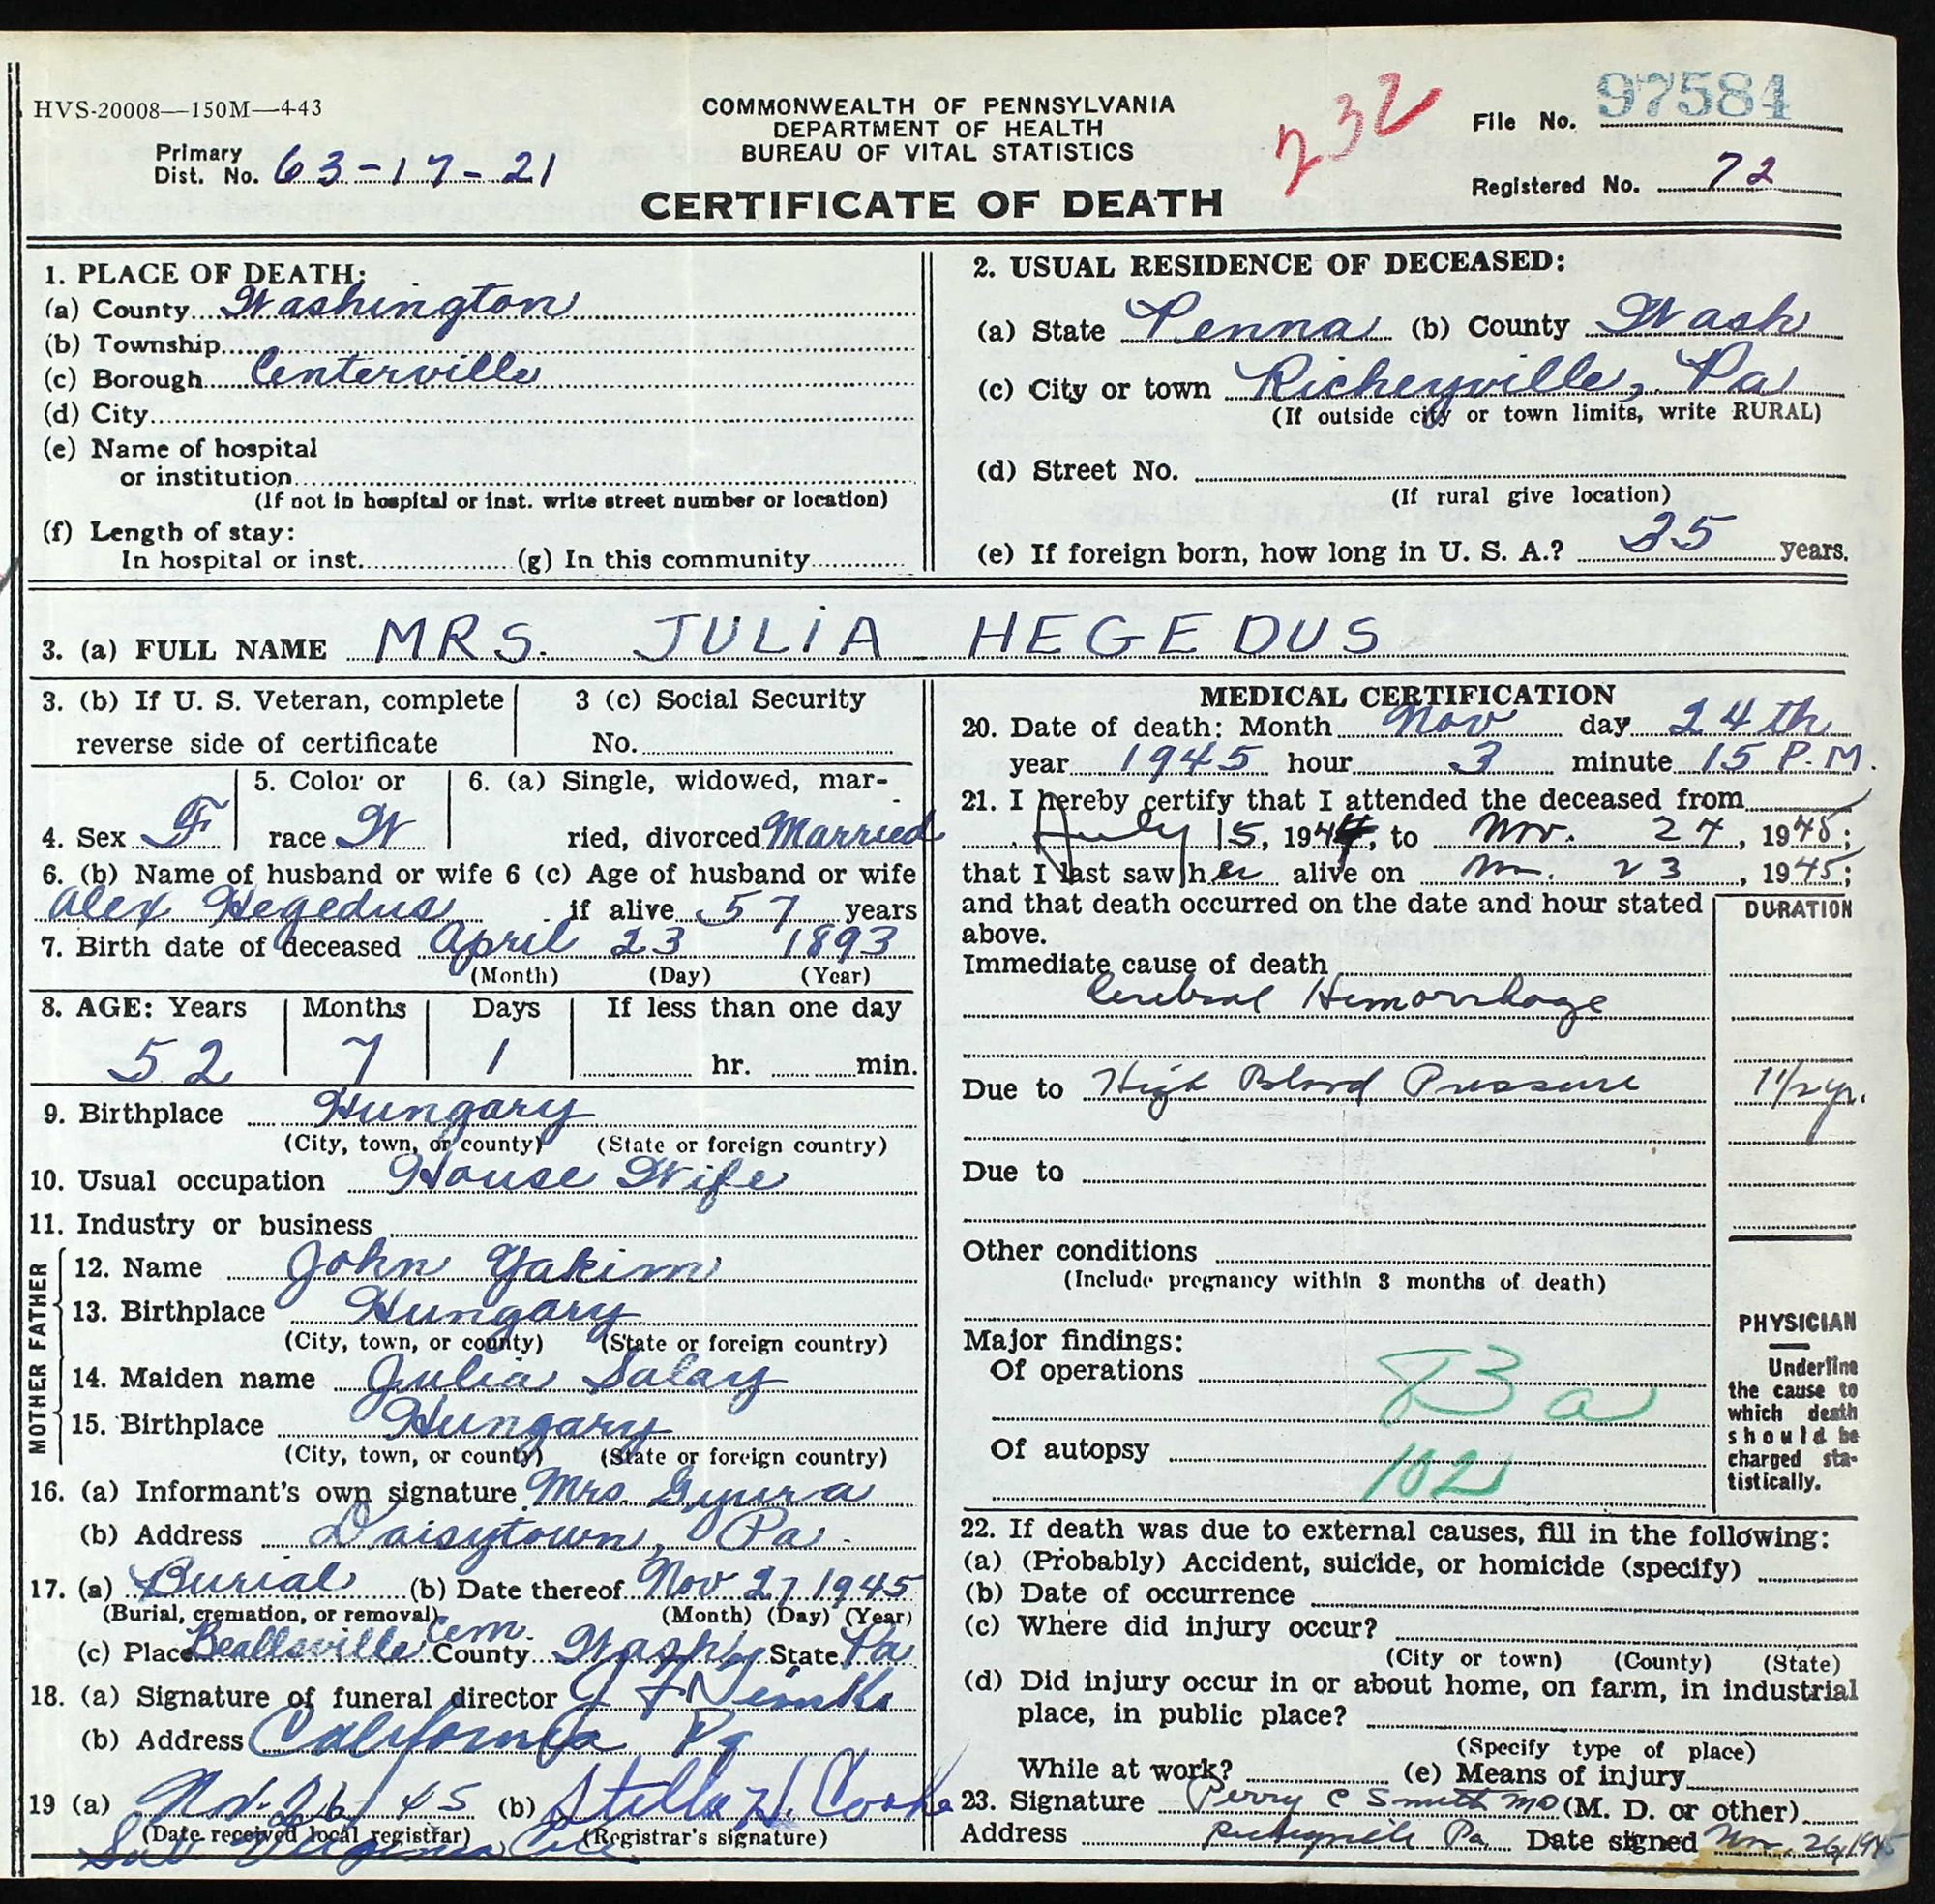 HVS-20008—150M—4-43
COMMONWEALTH OF PENNSYLVANIA
DEPARTMENT OF HEALTH
BUREAU OF VITAL STATISTICS
CERTIFICATE OF DEATH
232
File No. 97584
Primary Dist. No. 63-17-21
Registered No. 72
1. PLACE OF DEATH:
(a) County Washington
(b) Township
(c) Borough Centerville
(d) City
(e) Name of hospital
or institution
(If not in hospital or inst. write street number or location)
(f) Length of stay:
In hospital or inst. (g) In this community
2. USUAL RESIDENCE OF DECEASED:
(a) State Penna (b) County Wash
(c) City or town Richeyville, Pa
(If outside city or town limits, write RURAL)
(d) Street No.
(If rural give location)
(e) If foreign born, how long in U. S. A.? 35 years.
3. (a) FULL NAME MRS. JULIA HEGEDUS
3. (b) If U. S. Veteran, complete
reverse side of certificate
3 (c) Social Security
No.
4. Sex F
5. Color or
race W
6. (a) Single, widowed, mar-
ried, divorced Married
6. (b) Name of husband or wife 6 (c) Age of husband or wife
Alex Hegedus if alive 57 years
7. Birth date of deceased April 23 1893
(Month) (Day) (Year)
8. AGE: Years Months Days If less than one day
52 7 1 hr. min.
9. Birthplace Hungary
(City, town, or county) (State or foreign country)
10. Usual occupation House Wife
11. Industry or business
FATHER
12. Name John Yakim
13. Birthplace Hungary
(City, town, or county) (State or foreign country)
MOTHER
14. Maiden name Julia Salay
15. Birthplace Hungary
(City, town, or county) (State or foreign country)
16. (a) Informant's own signature Mrs. Gyura
(b) Address Daisytown, Pa.
17. (a) Burial (b) Date thereof Nov 27 1945
(Burial, cremation, or removal) (Month) (Day) (Year)
(c) Place Beallsville Cem. County Wash State Pa
18. (a) Signature of funeral director
(b) Address California Pa
19 (a) Nov. 26 45 (b) Stella H. Cooke
(Date received local registrar) (Registrar's signature)
MEDICAL CERTIFICATION
20. Date of death: Month Nov day 24th
year 1945 hour 3 minute 15 P.M.
21. I hereby certify that I attended the deceased from
July 15, 1944, to Nov. 24, 1945;
that I last saw her alive on Nov. 23, 1945;
and that death occurred on the date and hour stated
above.
DURATION
Immediate cause of death
Cerebral Hemorrhage
Due to High Blood Pressure 1 1/2 yr.
Due to
Other conditions
(Include pregnancy within 3 months of death)
Major findings:
Of operations
83 a
Of autopsy
102
PHYSICIAN
Underline
the cause to
which death
should be
charged sta-
tistically.
22. If death was due to external causes, fill in the following:
(a) (Probably) Accident, suicide, or homicide (specify)
(b) Date of occurrence
(c) Where did injury occur?
(City or town) (County) (State)
(d) Did injury occur in or about home, on farm, in industrial
place, in public place?
(Specify type of place)
While at work? (e) Means of injury
23. Signature Perry C Smith MD (M. D. or other)
Address Richeyville Pa. Date signed Nov. 26, 1945